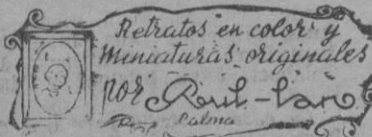 Retratos en color y
miniaturas originales
por Raul-Lano
Palma